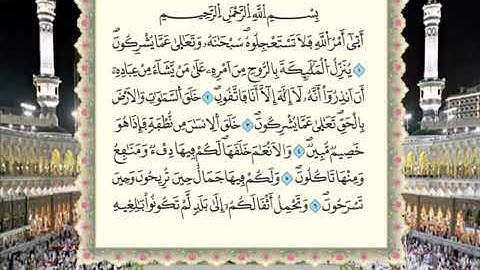 بِسْمِ اللَّهِ الرَّحْمَٰنِ الرَّحِيمِ
أَتَىٰ أَمْرُ اللَّهِ فَلَا تَسْتَعْجِلُوهُ ۚ سُبْحَانَهُ وَتَعَالَىٰ عَمَّا يُشْرِكُونَ
۝١ يُنَزِّلُ الْمَلَائِكَةَ بِالرُّوحِ مِنْ أَمْرِهِ عَلَىٰ مَن يَشَاءُ مِنْ عِبَادِهِ
أَنْ أَنذِرُوا أَنَّهُ لَا إِلَٰهَ إِلَّا أَنَا فَاتَّقُونِ ۝٢ خَلَقَ السَّمَاوَاتِ وَالْأَرْضَ
بِالْحَقِّ ۚ تَعَالَىٰ عَمَّا يُشْرِكُونَ ۝٣ خَلَقَ الْإِنسَانَ مِن نُّطْفَةٍ فَإِذَا هُوَ
خَصِيمٌ مُّبِينٌ ۝٤ وَالْأَنْعَامَ خَلَقَهَا ۗ لَكُمْ فِيهَا دِفْءٌ وَمَنَافِعُ
وَمِنْهَا تَأْكُلُونَ ۝٥ وَلَكُمْ فِيهَا جَمَالٌ حِينَ تُرِيحُونَ وَحِينَ
تَسْرَحُونَ ۝٦ وَتَحْمِلُ أَثْقَالَكُمْ إِلَىٰ بَلَدٍ لَّمْ تَكُونُوا بَالِغِيهِ